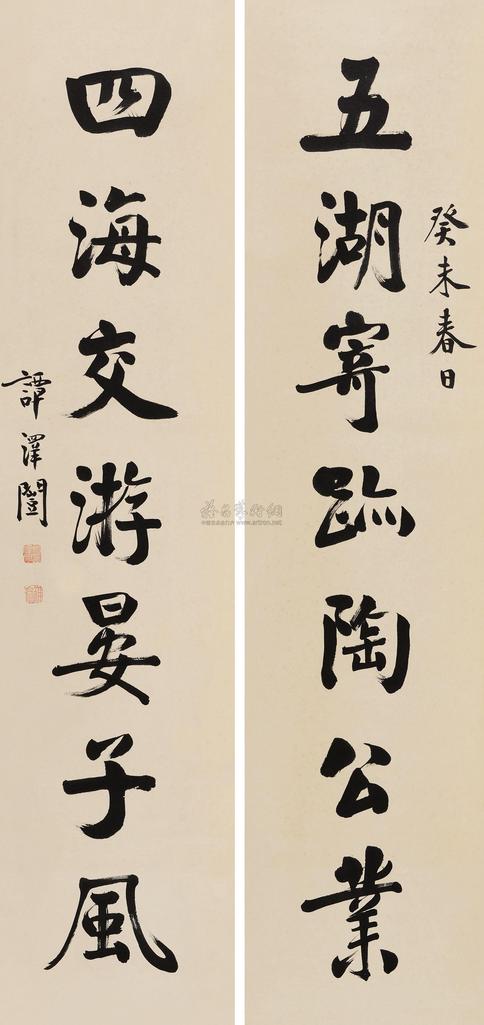 五湖寄跡陶公業
癸未春日
四海交游晏子風
譚澤闓
www.artron.net